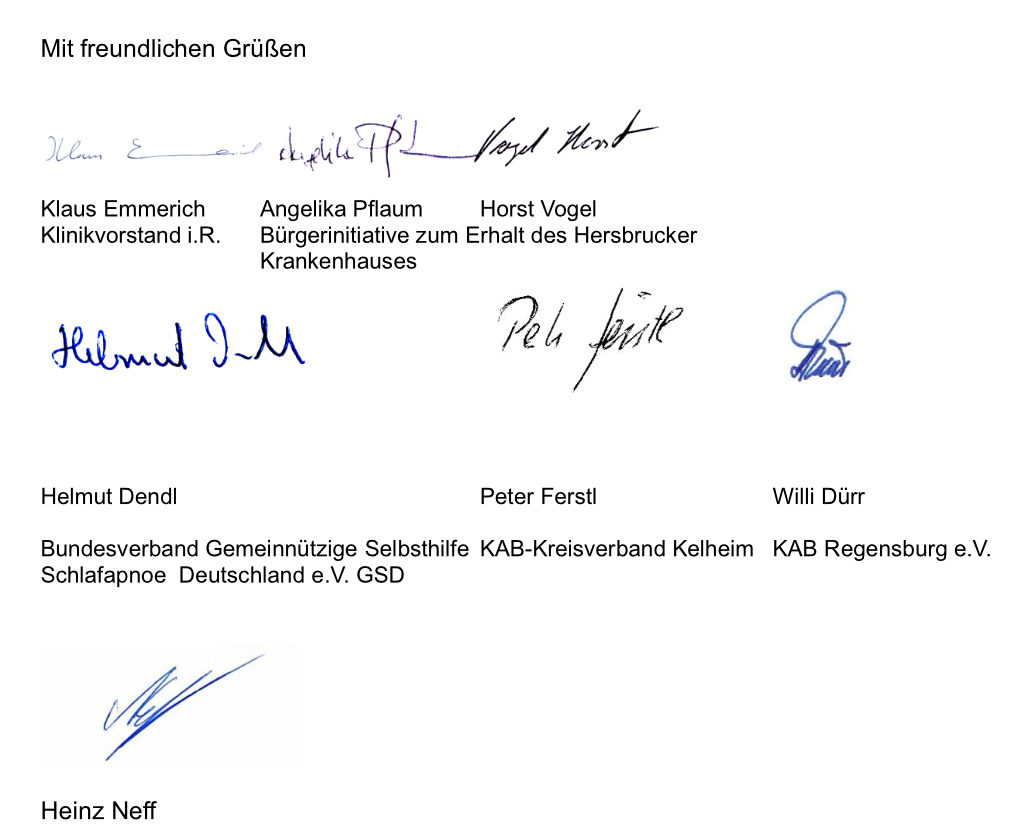 Mit freundlichen Grüßen
Klaus Emmerich Angelika Pflaum Vogel Horst
Klaus Emmerich Angelika Pflaum Horst Vogel
Klinikvorstand i.R. Bürgerinitiative zum Erhalt des Hersbrucker
Krankenhauses
Helmut Dendl Peter Ferstl Dürr
Helmut Dendl Peter Ferstl Willi Dürr
Bundesverband Gemeinnützige Selbsthilfe KAB-Kreisverband Kelheim KAB Regensburg e.V.
Schlafapnoe Deutschland e.V. GSD
Neff
Heinz Neff